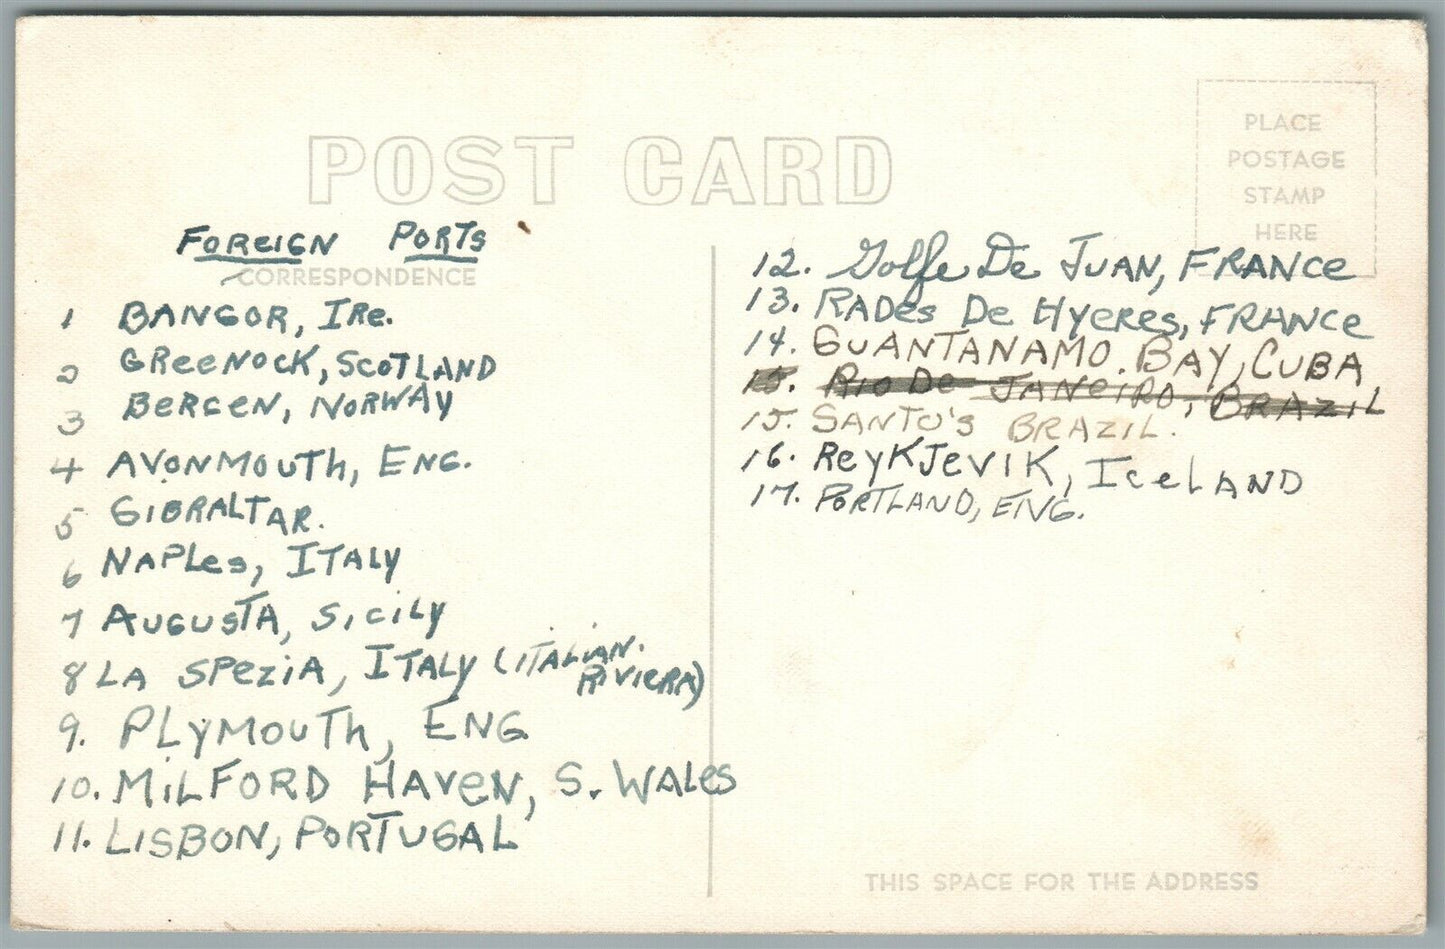 POST CARD
PLACE
POSTAGE
STAMP
HERE
FOREIGN PORTS
CORRESPONDENCE
1 BANGOR, IRe.
2 GReeNOCK, SCOTLAND
3 BeRGeN, NORWAy
4 AVONMOUTh, ENG.
5 GIBRALTAR.
6 NAPLes, ITALY
7 AUGUSTA, SiCiLy
8 LA SPeziA, ITALy (iTALiAN.
RiVieRA)
9. PLyMOUTh, ENG
10. MiLFORD HAVeN, S. WALes
11. LISBON, PORTUGAL
12. Golfe De JUAN, FRANCe
13. RADes De Hyeres, FRANCe
14. GUANTANAMO. BAY, CUBA
15. RiO De JANeiRO, BRAZiL
15. SANTO's BRAZIL.
16. ReyKJeViK, IceLAND
17. PORTLAND, ENG.
THIS SPACE FOR THE ADDRESS